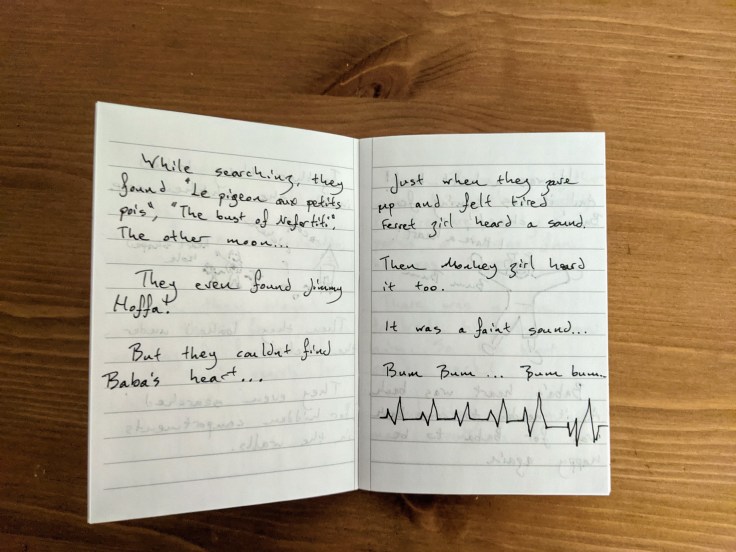 While searching, they
found "Le pigeon aux petits
pois", "The bust of Nefertiti",
The other moon...
They even found Jimmy
Hoffa!
But they couldnt find
Baba's heart...
Just when they gave
up and felt tired
Ferret girl heard a sound.
Then Monkey girl heard
it too.
It was a faint sound...
Bum Bum ... Bum bum...